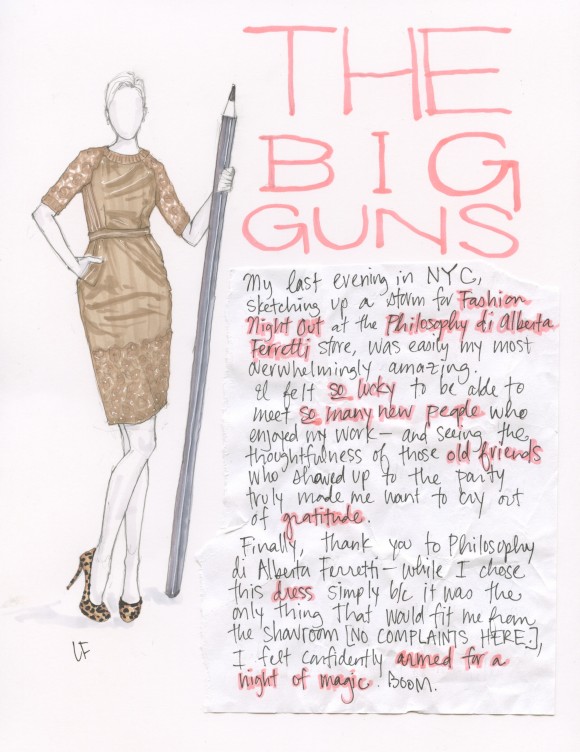 THE
BIG
GUNS
My last evening in NYC,
sketching up a storm for Fashion
Night Out at the Philosophy di Alberta
Ferretti store, was easily my most
overwhelmingly amazing.
I felt so lucky to be able to
meet so many new people who
enjoyed my work – and seeing the
thoughtfulness of those old friends
who showed up to the party
truly made me want to cry out
of gratitude.
Finally, thank you to Philosophy
di Alberta Ferretti – while I chose
this dress simply b/c it was the
only thing that would fit me from
the showroom [NO COMPLAINTS HERE.],
I felt confidently armed for a
night of magic. BOOM.
LF